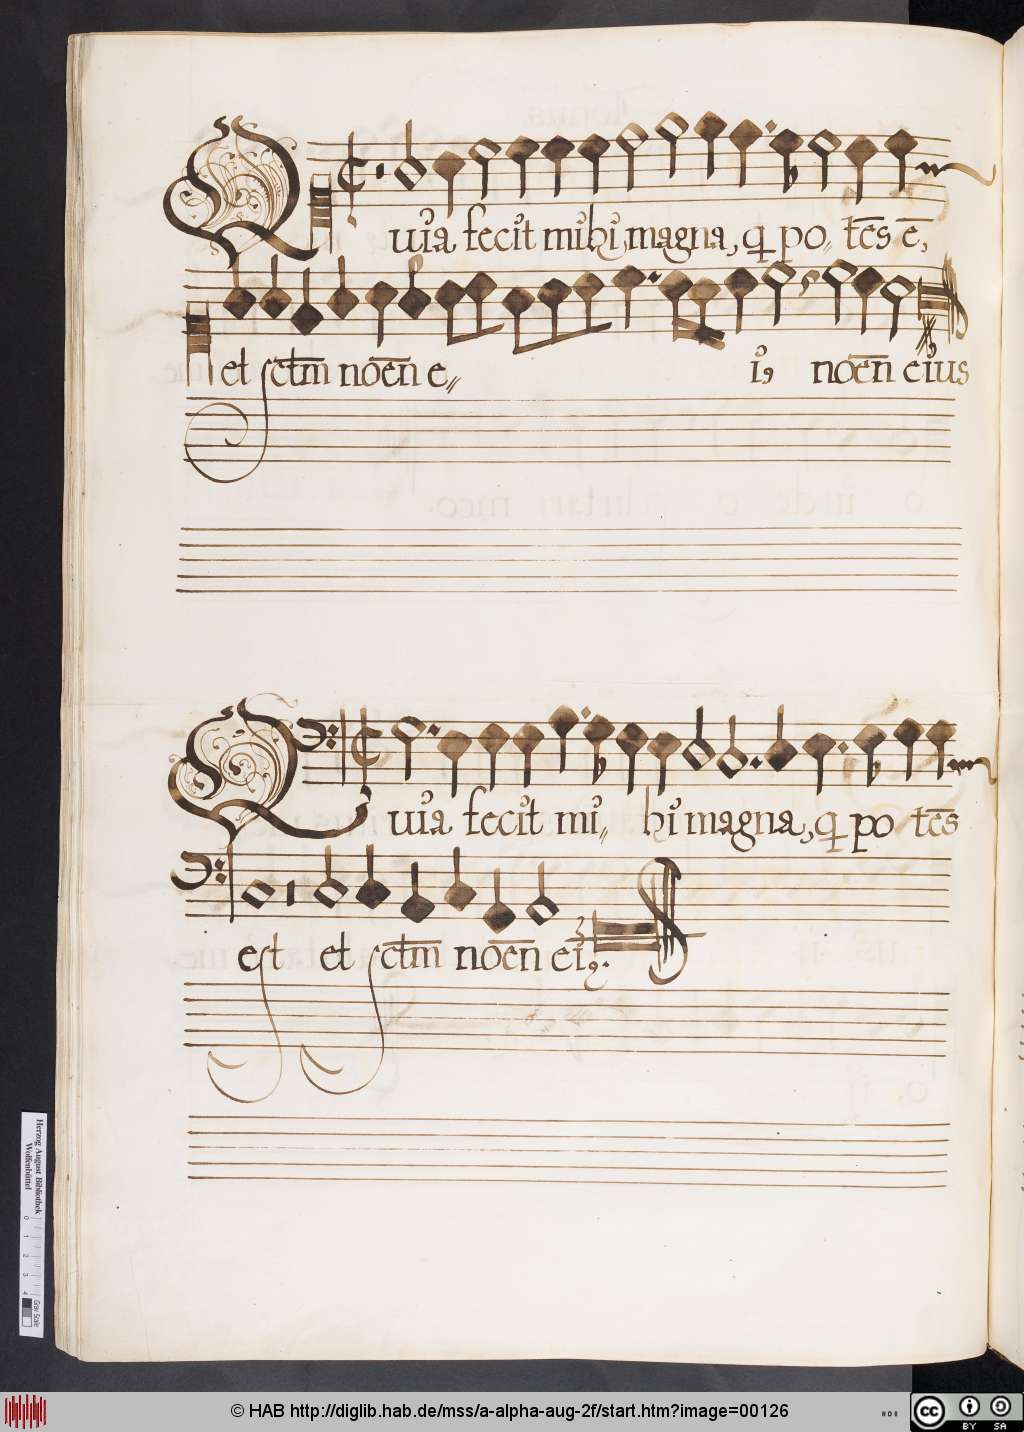 Quia fecit mihi, magna, q̃ po„ tẽs ẽ,
et sctm̃ noẽn e„ i9 noẽn eius
Quia fecit mi„ hi magna, q̃ po tẽs
est et sctm̃ noẽn ei9.
Herzog August Bibliothek
Wolfenbüttel
0 1 2 3 4
Gray Scale
© HAB http://diglib.hab.de/mss/a-alpha-aug-2f/start.htm?image=00126
HAB
cc BY SA